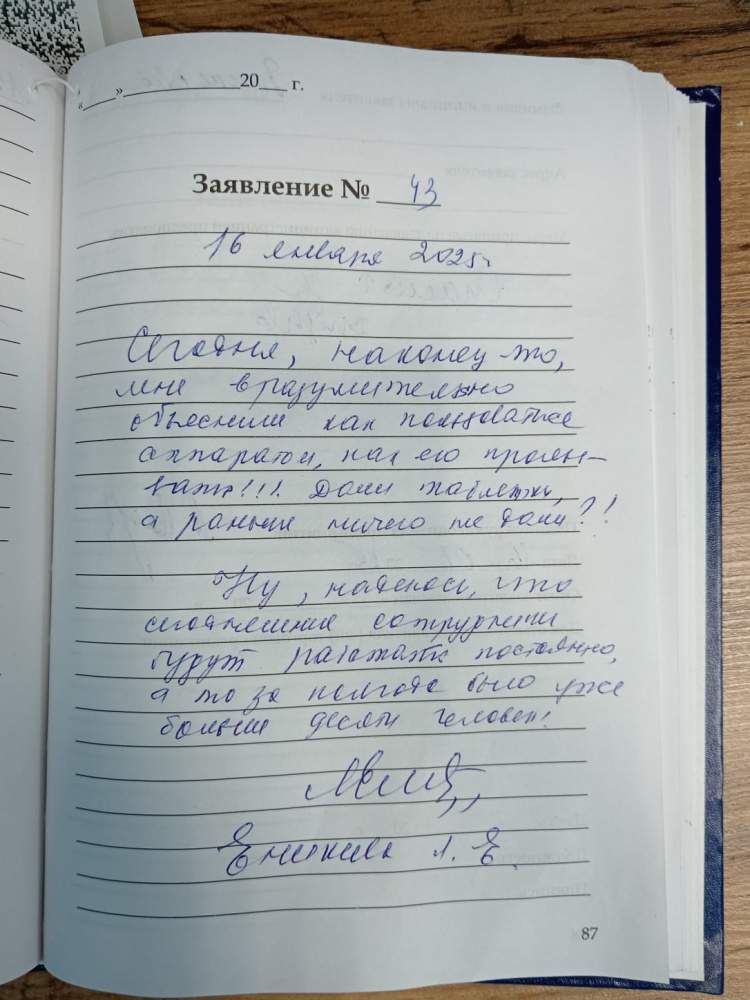 «___»____________20___ г.
Заявление № 43
16 января 2025г.
Сегодня, наконец-то,
мне вразумительно
объяснили как пользоваться
аппаратом, как его промы-
вать!!! Дали таблетки,
а раньше ничего не дали?!
Ну, надеюсь, что
сегодняшние сотрудники
будут работать постоянно,
а то за полгода было уже
больше десяти человек!
Л. Е.
87